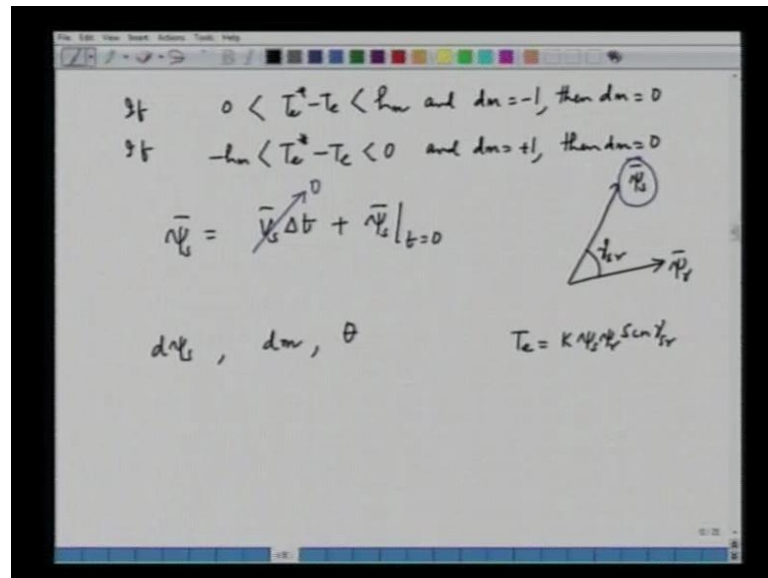 File Edit View Insert Actions Tools Help
If 0 < Te* - Te < hm and dm = -1, then dm = 0
If -hm < Te* - Te < 0 and dm = +1, then dm = 0
ψ̄s = V̄s Δt + ψ̄s|t=0
0
ψ̄s
γsr
ψ̄r
dψs , dm , θ
Te = K ψs ψr Sin γsr